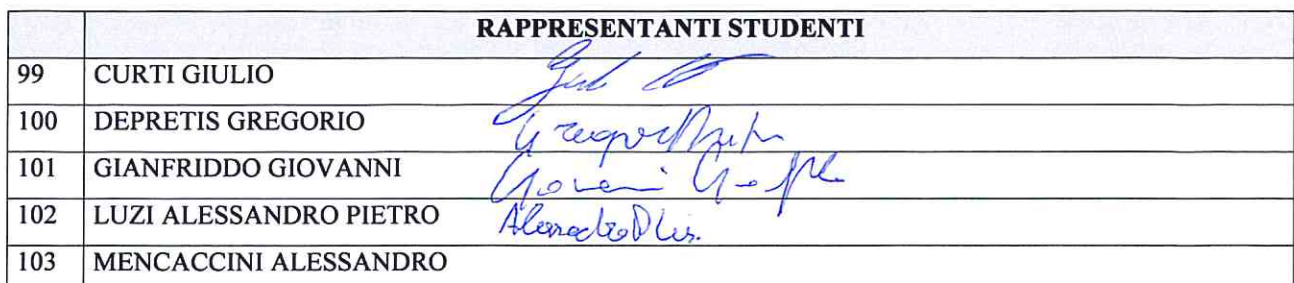 RAPPRESENTANTI STUDENTI
99 CURTI GIULIO
100 DEPRETIS GREGORIO
101 GIANFRIDDO GIOVANNI Giovanni
102 LUZI ALESSANDRO PIETRO
103 MENCACCINI ALESSANDRO